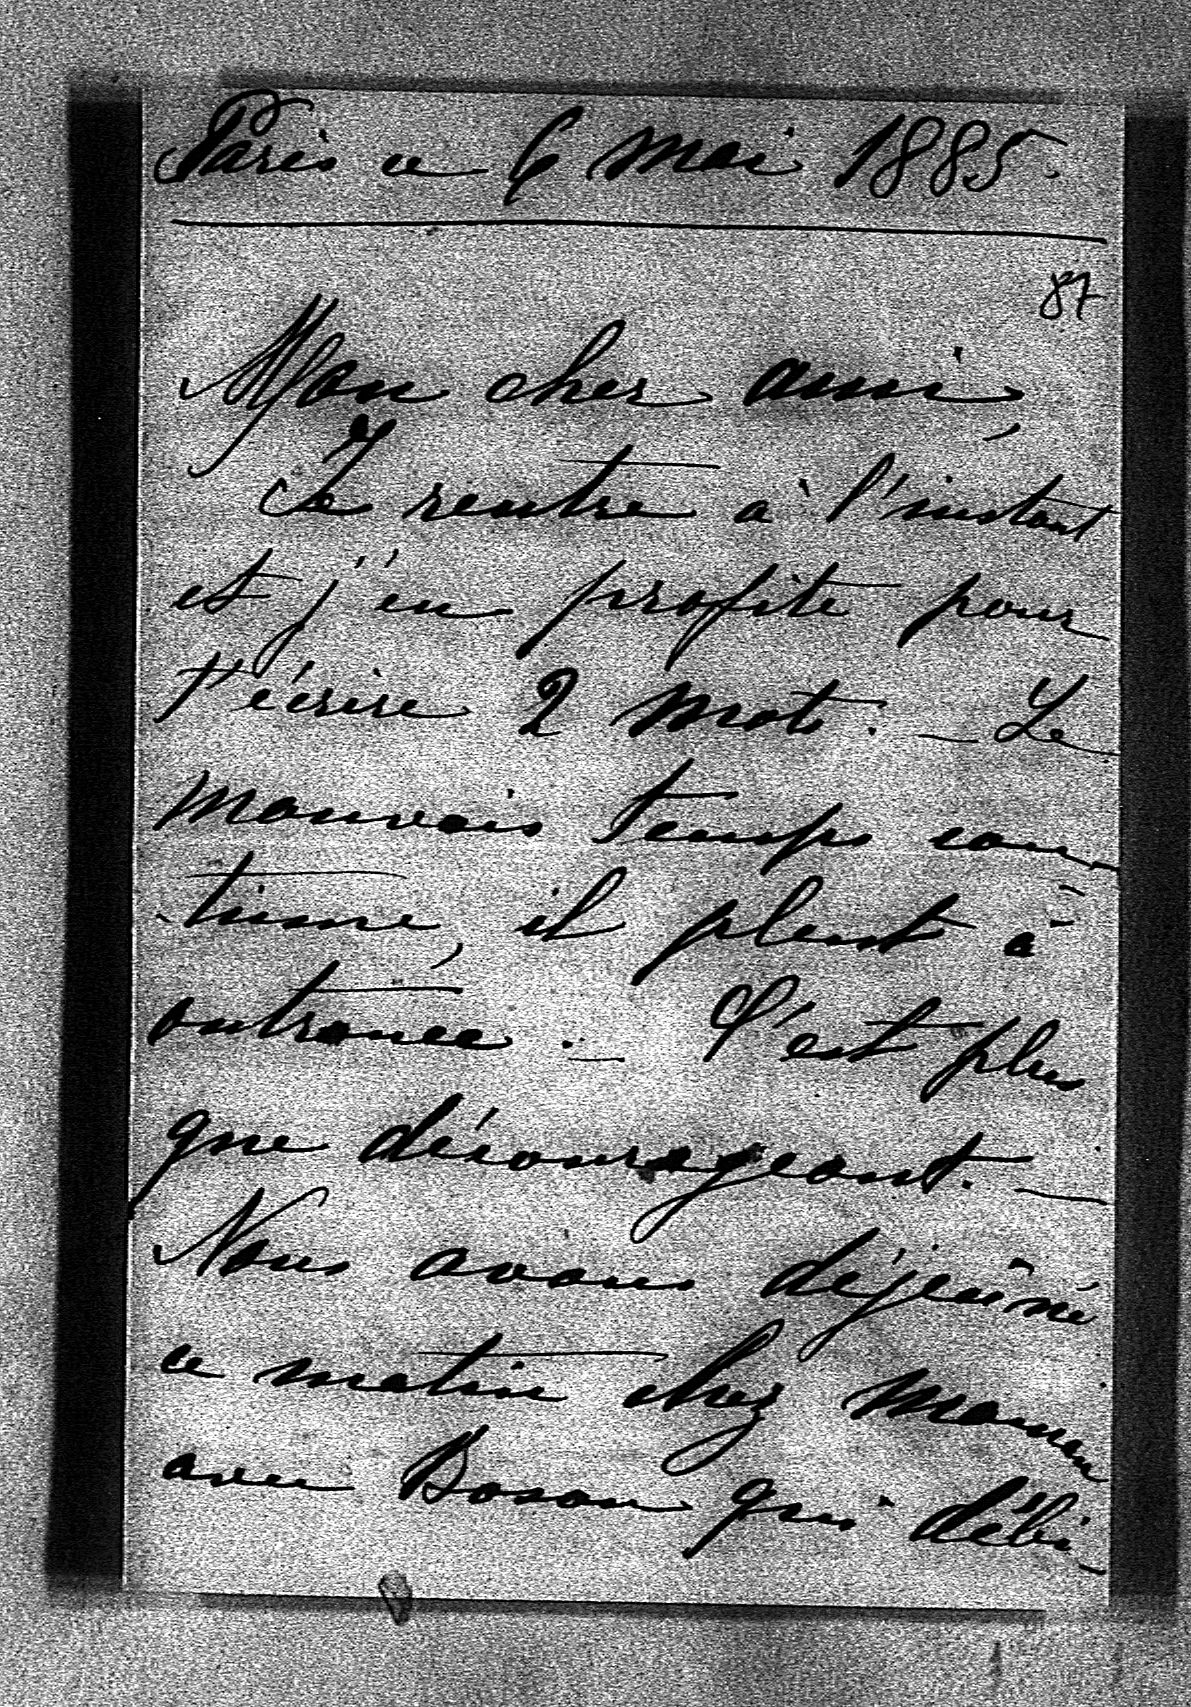 Paris ce 6 mai 1885.
87
Mon cher ami,
Je rentre à l'instant
et j'en profite pour
t'écrire 2 mots. — Le
mauvais temps con-
-tinue, il pleut à
outrance. — C'est plus
que décourageant. —
Nous avons déjeûné
ce matin chez maman
avec Boson qui débi-